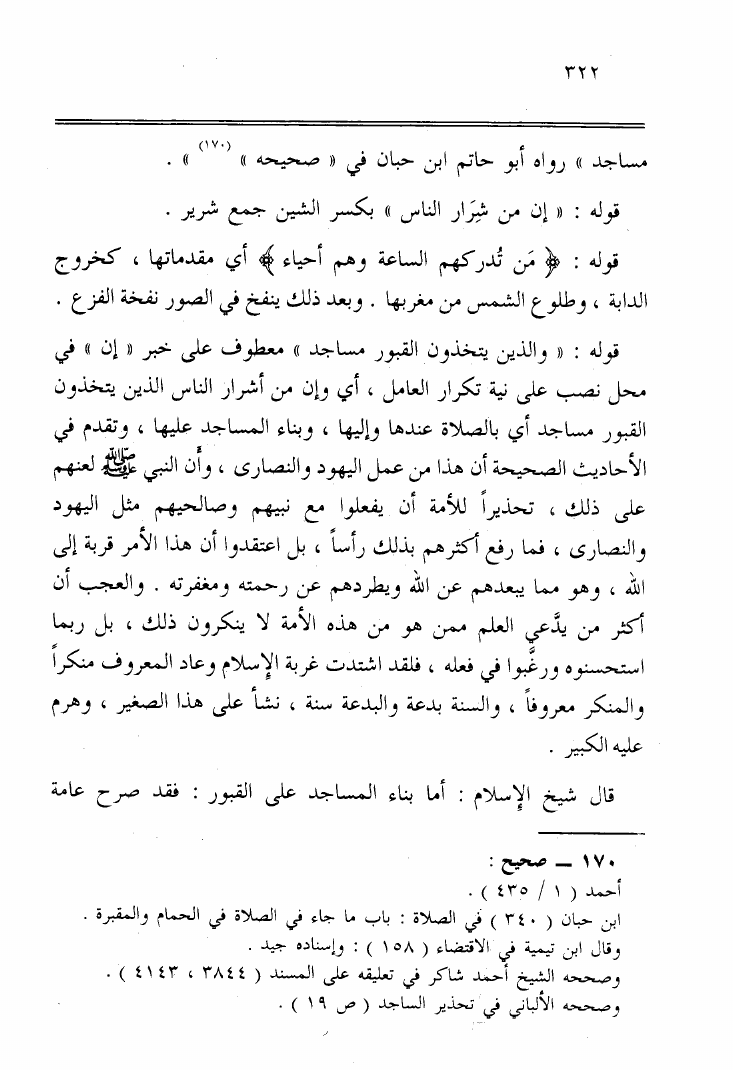 ٣٢٢
مساجد » رواه أبو حاتم ابن حبان في « صحيحه » (١٧٠) » .
قوله : « إن من شِرَار الناس » بكسر الشين جمع شرير .
قوله : ﴿ مَن تُدركهم الساعة وهم أحياء ﴾ أي مقدماتها ، كخروج
الدابة ، وطلوع الشمس من مغربها . وبعد ذلك ينفخ في الصور نفخة الفزع .
قوله : « والذين يتخذون القبور مساجد » معطوف على خبر « إن » في
محل نصب على نية تكرار العامل ، أي وإن من أشرار الناس الذين يتخذون
القبور مساجد أي بالصلاة عندها وإليها ، وبناء المساجد عليها ، وتقدم في
الأحاديث الصحيحة أن هذا من عمل اليهود والنصارى ، وأن النبي ﷺ لعنهم
على ذلك ، تحذيراً للأمة أن يفعلوا مع نبيهم وصالحيهم مثل اليهود
والنصارى ، فما رفع أكثرهم بذلك رأساً ، بل اعتقدوا أن هذا الأمر قربة إلى
الله ، وهو مما يبعدهم عن الله ويطردهم عن رحمته ومغفرته . والعجب أن
أكثر من يدَّعي العلم ممن هو من هذه الأمة لا ينكرون ذلك ، بل ربما
استحسنوه ورغَّبوا في فعله ، فلقد اشتدت غربة الإسلام وعاد المعروف منكراً
والمنكر معروفاً ، والسنة بدعة والبدعة سنة ، نشأ على هذا الصغير ، وهرم
عليه الكبير .
قال شيخ الإسلام : أما بناء المساجد على القبور : فقد صرح عامة
١٧٠ ــ صحيح :
أحمد ( ١ / ٤٣٥ ) .
ابن حبان ( ٣٤٠ ) في الصلاة : باب ما جاء في الصلاة في الحمام والمقبرة .
وقال ابن تيمية في الاقتضاء ( ١٥٨ ) : وإسناده جيد .
وصححه الشيخ أحمد شاكر في تعليقه على المسند ( ٣٨٤٤ ، ٤١٤٣ ) .
وصححه الألباني في تحذير الساجد ( ص ١٩ ) .